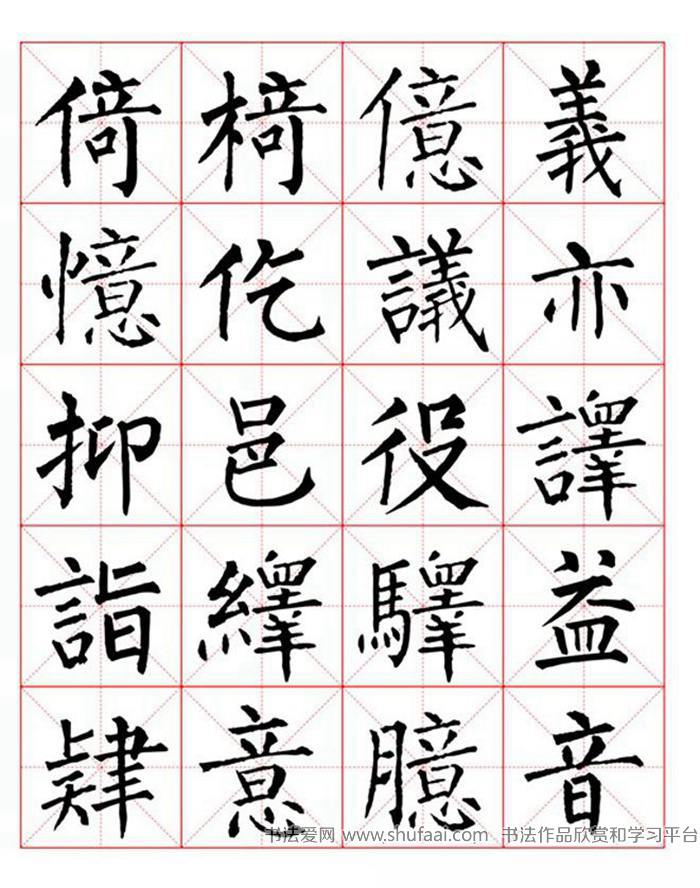 倚椅億義
憶仡議亦
抑邑役譯
詣繹驛益
肄意臆音
书法爱网 www.shufaai.com 书法作品欣赏和学习平台